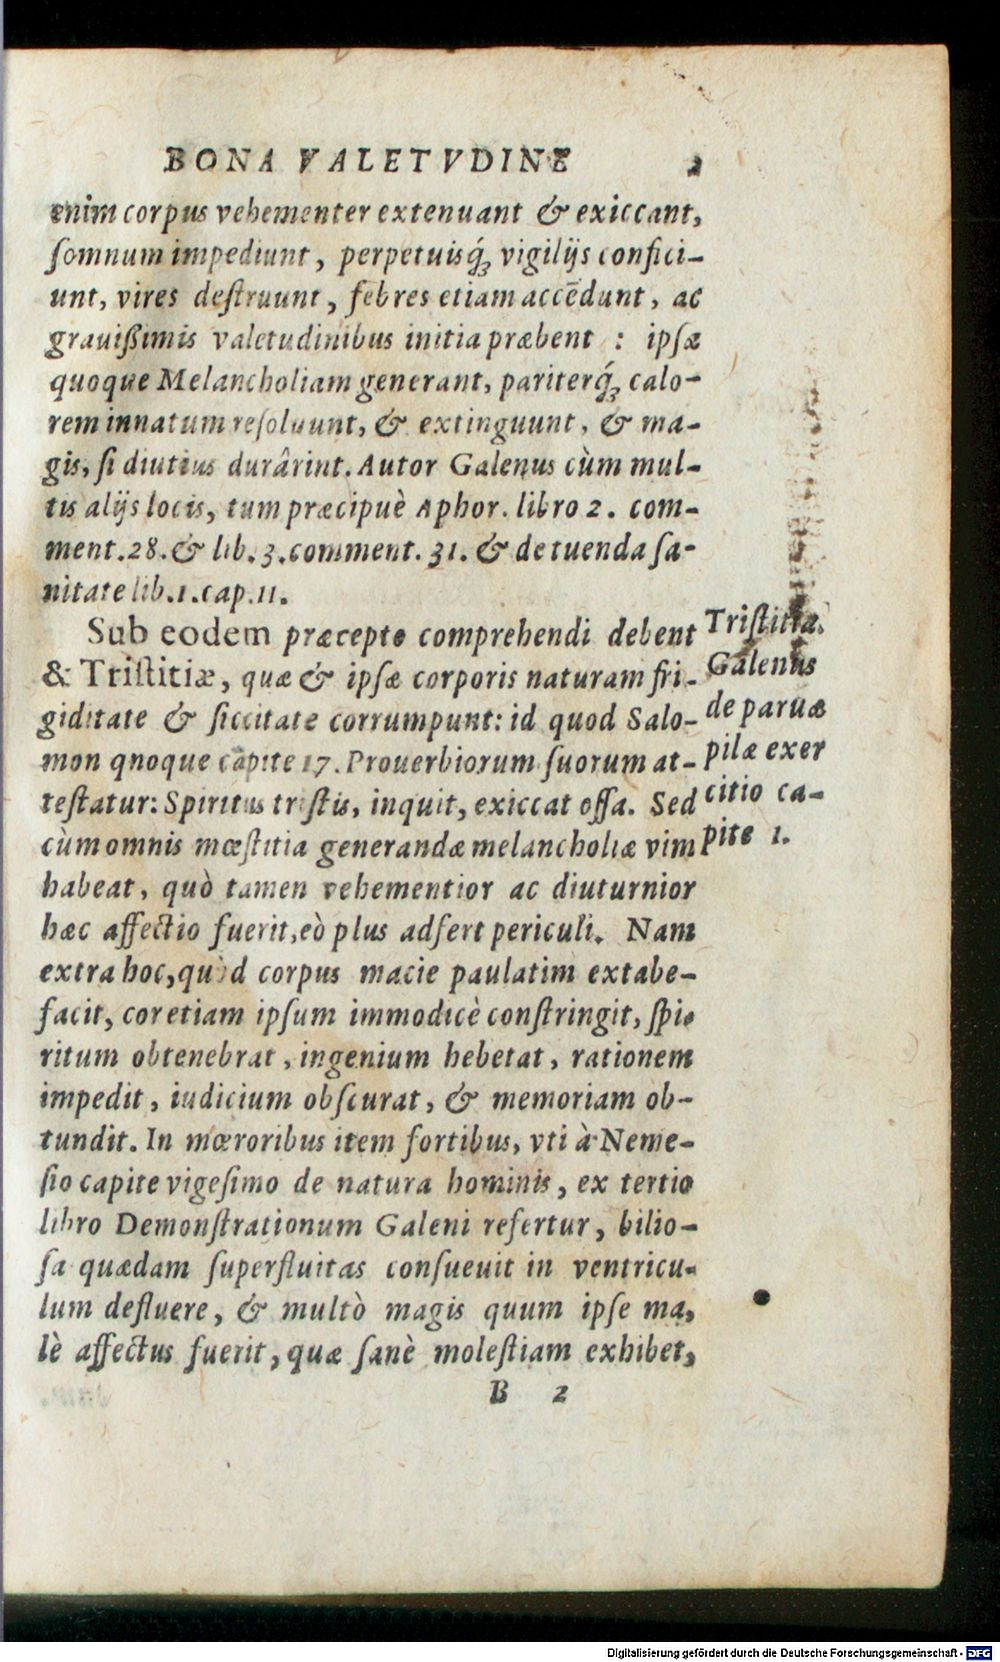 BONA VALETVDINE 2
enim corpus vehementer extenuant & exiccant,
ſomnum impediunt, perpetuisq́ꝫ vigilijs confici-
unt, vires deſtruunt, febres etiam accēdunt, ac
grauißimis valetudinibus initia præbent : ipſæ
quoque Melancholiam generant, pariterq́ꝫ calo-
rem innatum reſoluunt, & extinguunt, & ma-
gis, ſi diutius durârint. Autor Galenus cùm mul-
tis alijs locis, tum præcipuè Aphor. libro 2. com-
ment. 28. & lib. 3. comment. 31. & de tuenda ſa-
nitate lib. 1. cap. 11.
Sub eodem præcepto comprehendi debent
& Triſtitiæ, quæ & ipſæ corporis naturam fri-
giditate & ſiccitate corrumpunt: id quod Salo-
mon qnoque capite 17. Prouerbiorum ſuorum at-
teſtatur: Spiritus triſtis, inquit, exiccat oſſa. Sed
cùm omnis mœſtitia generandæ melancholiæ vim
habeat, quò tamen vehementior ac diuturnior
hæc affectio fuerit, eò plus adfert periculi. Nam
extra hoc, quòd corpus macie paulatim extabe-
facit, cor etiam ipſum immodicè conſtringit, ſpi-
ritum obtenebrat, ingenium hebetat, rationem
impedit, iudicium obſcurat, & memoriam ob-
tundit. In mœroribus item fortibus, vti à Neme-
ſio capite vigeſimo de natura hominis, ex tertio
libro Demonſtrationum Galeni refertur, bilio-
ſa quædam ſuperfluitas conſueuit in ventricu-
lum defluere, & multò magis quum ipſe ma,
lè affectus fuerit, quæ ſanè moleſtiam exhibet,
B 2
Triſtitiæ.
Galenus
de paruæ
pilæ exer
citio ca-
pite 1.
Digitalisierung gefördert durch die Deutsche Forschungsgemeinschaft - DFG